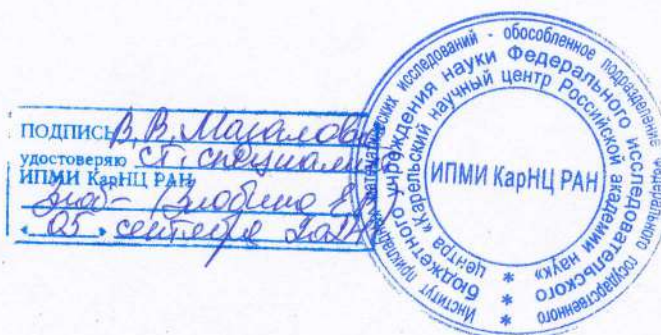 ПОДПИСЬ В.В. Мазалова
удостоверяю ст. специалист
ИПМИ КарНЦ РАН
« 05 » сентября
Институт прикладных математических исследований - обособленное подразделение Федерального государственного
бюджетного учреждения науки Федерального исследовательского
центра «Карельский научный центр Российской академии наук»
ИПМИ КарНЦ РАН
* * *